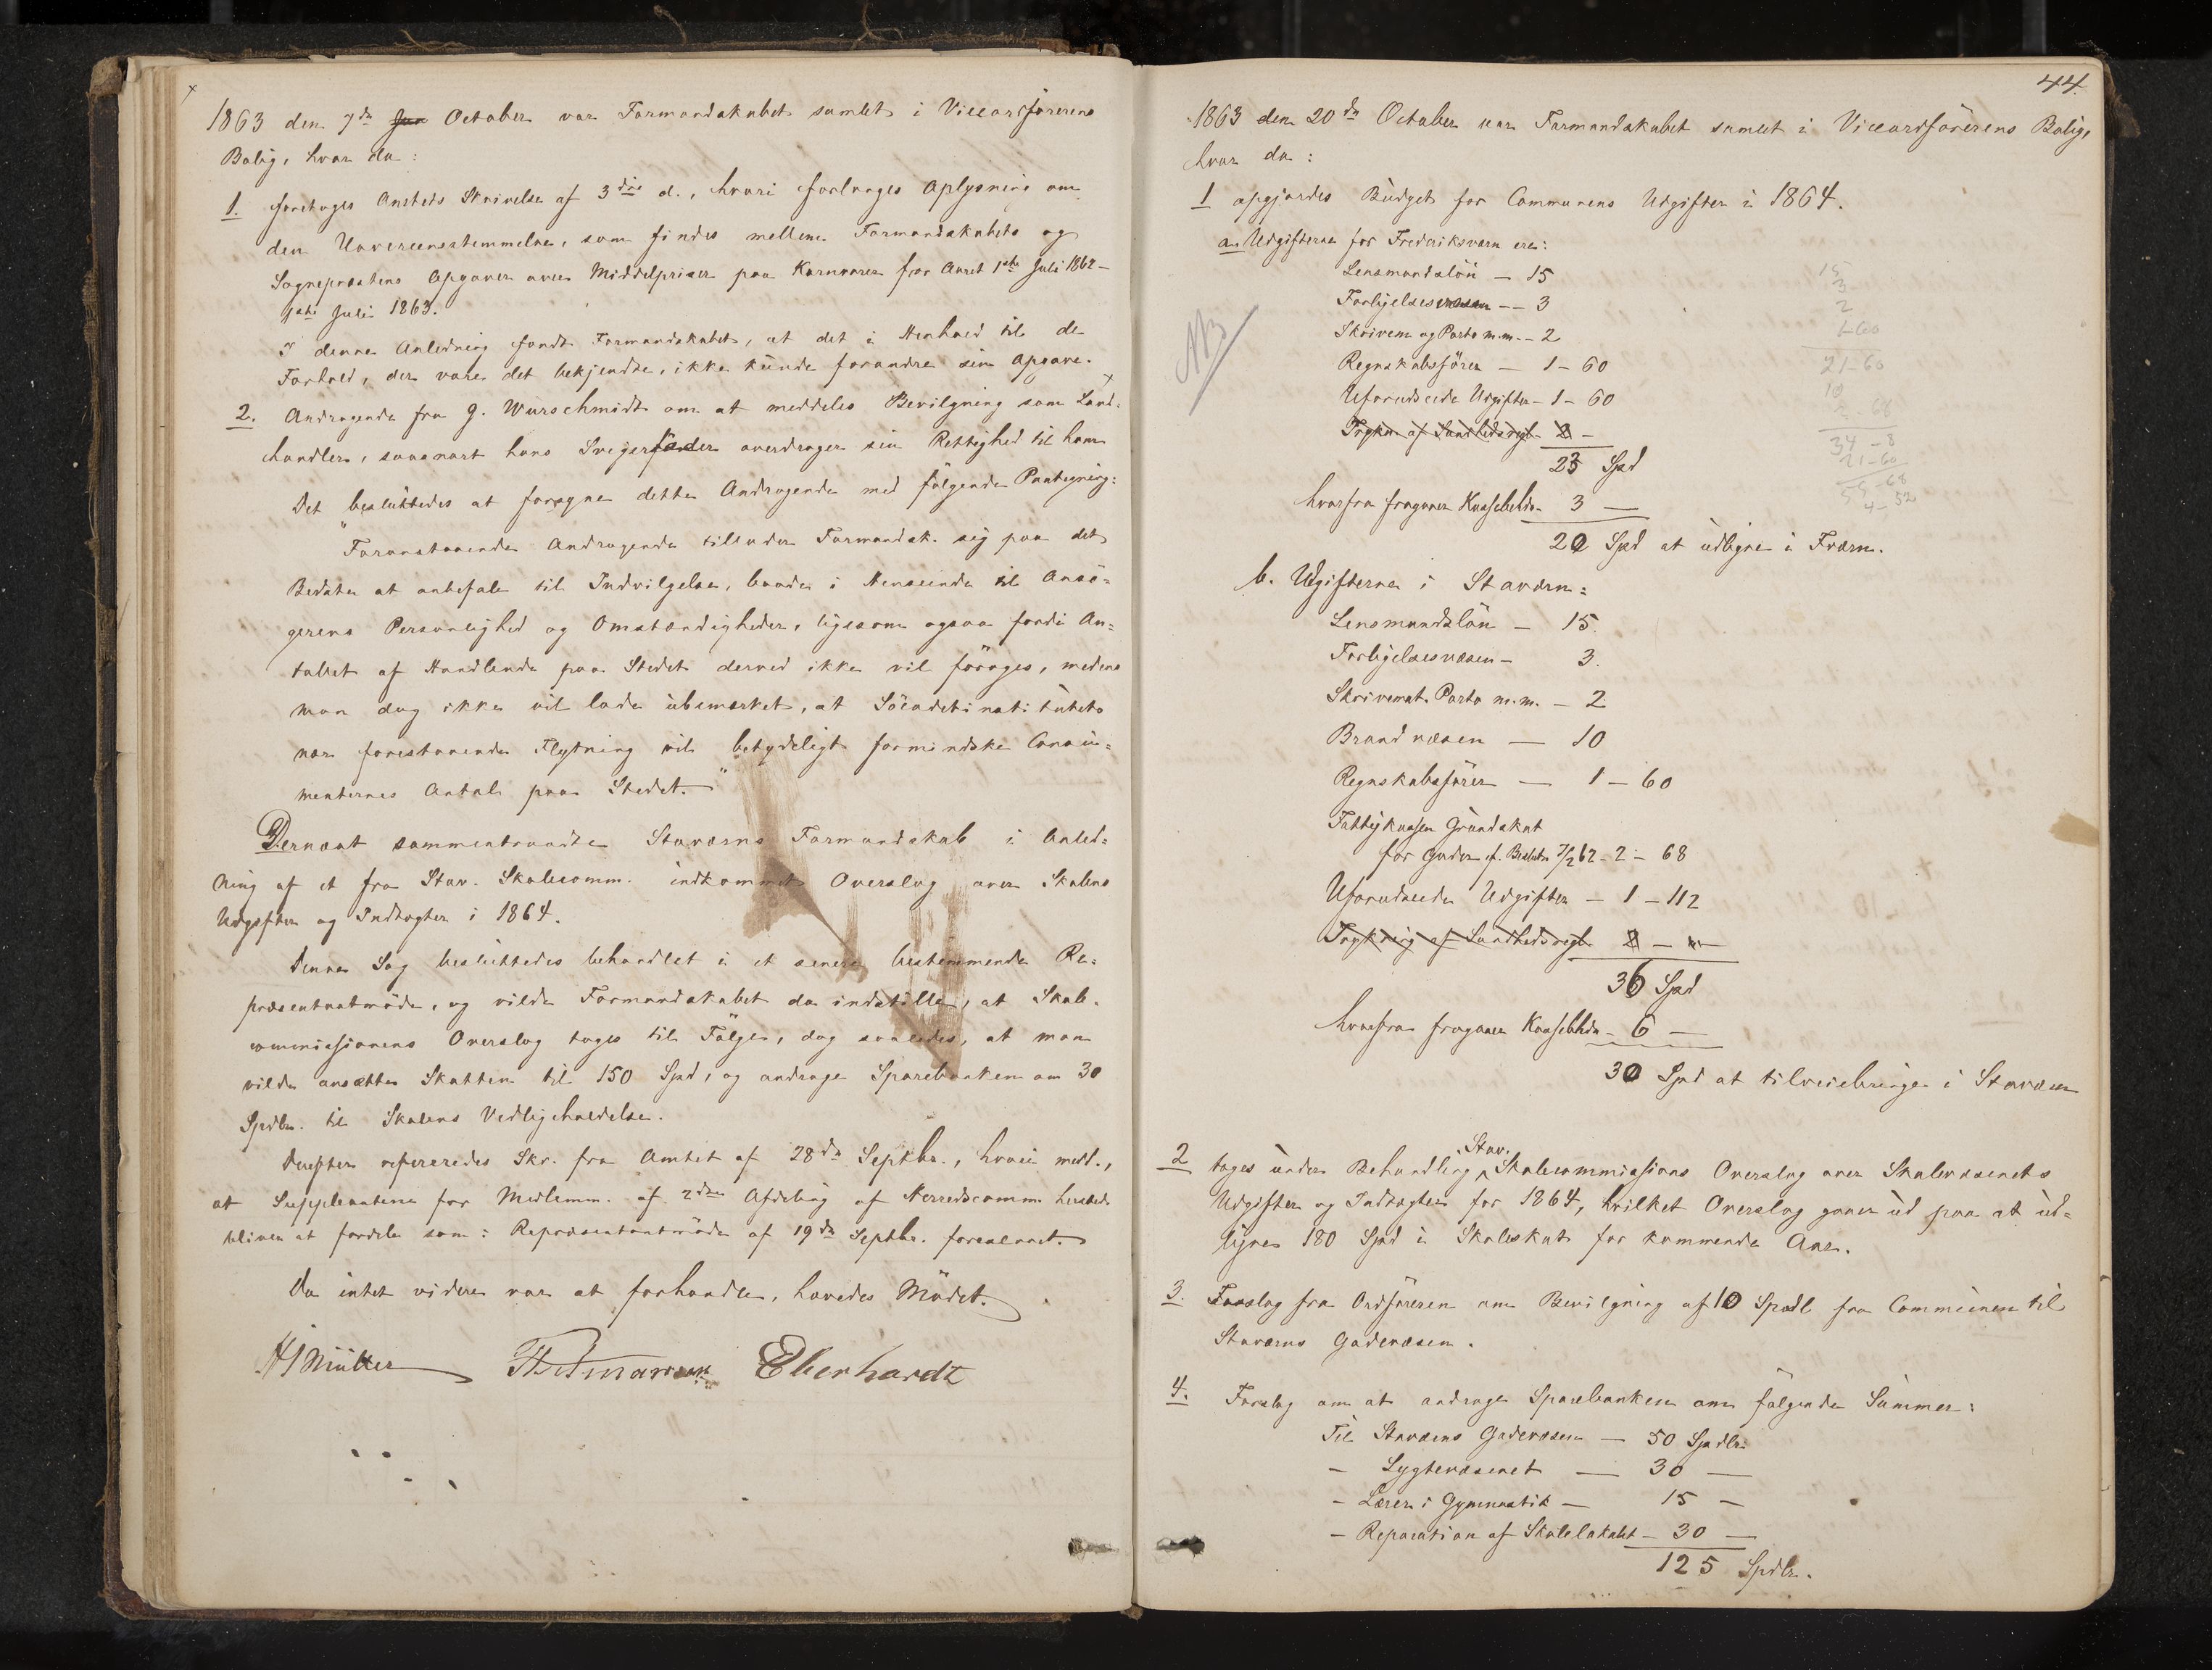 1863 den 7de Jan October var Formandskabet samlet i Viceordförerens
Bolig, hvor da:
1. foretoges Amtets Skrivelse af 3die d., hvori forlanges Oplysning om
den Uovereensstemmelse, som findes mellem Formandskabets og
Sognepræstens Opgaver over Middelpriser paa Kornvarer for Aaret 1ste Juli 1862-
1ste Juli 1863.
I denne Anledning fandt Formandskabet, at det i Henhold til de
Forhold, der vare det bekjendte, ikke kunde forandre sin Opgave.
2. Andragende fra G. Wurschmidt om at meddeles Bevilgning som Land-
handler, saasnart hans Svigerfader overdrager sin Rettighed til ham
Det besluttedes at forsyne dette Andragende med fölgende Paategning:
"Foranstaaende Andragende tillader Formandsk. sig paa det
Bedste at anbefale til Indvilgelse, baade i Henseende til Ansö=
gerens Personlighed og Omstændigheder, ligesom ogsaa fordi An=
tallet af Handlende paa Stedet derved ikke vil föröges, medens
man dog ikke vil lade ubemærket, at Söcadetinstitutets
nær forestaaende Flytning vil betydeligt formindske Consu=
menternes Antal paa Stedet."
Dernæst sammentraadte Staværns Formandskab i Anled=
ning af et fra Stav. Skolecomm. indkommet Overslag over Skolens
Udgifter og Indtægter i 1864.
Denne Sag besluttedes behandlet i et senere bestemmende Re=
præsentantmöde, og vilde Formandskabet da indstille, at Skole-
commissionens Overslag toges til Fölge, dog saaledes, at man
vilde ansætte Skatten til 150 Spd, og andrage Sparebanken om 30
Spdlr. til Skolens Vedligeholdelse.
Derefter refereredes Skr. fra Amtet af 28de Septbr., hvori medd.,
at Suppleanterne for Medlemm. af 2den Afdeling af Herredscomm. herstedt
bliver at fordele som i Repræsentantmöde af 19de Septbr. foreslaaet.
Da intet videre var at forhandle, hævedes Mödet.
Müller Eberhardt
44.
1863 den 20de October var Formandskabet samlet i Viceordförerens Bolig,
hvor da:
1 opgjordes Budget for Communens Udgifter i 1864.
a. Udgifterne for Fredriksværn ere:
Lensmandslön — 15
Forligelsesvæsen — 3
Skrivem og Porto m.m. - 2
Regnskabsförer — 1 - 60
Uforudseede Udgifter - 1 - 60
Trykn. af Sundhedsregl. 2 -
23 Spd
hvorfra fragaaer Kassebehdn. 3 —
20 Spd at udligne i Fværn.
NB
15
3
2
1-60
21-60
10
2-68
34-8
21-60
55-68
4-52
b. Udgifterne i Staværn:
Lensmandslön — 15.
Forligelsesvæsen — 3.
Skrivemat. Porto m.m. — 2
Brandvæsen — 10
Regnskabsförer — 1 - 60
Fattigkassen Grundskat
for Gader cf. Beslutn 7/2 62 - 2 - 68
Uforudseede Udgifter - 1 - 112
Trykning af Sundhedsregl. 2 -
36 Spd
hvorfra fragaaer Kassebhdn - 6 —
30 Spd at tilveiebringe i Staværn
2 toges under Behandling Stav. Skolecommissions Overslag over Skolevæsenets
Udgifter og Indtægter for 1864, hvilket Overslag gaaer ud paa at ud=
ligne 180 Spd i Skoleskat for kommende Aar.
3. Forslag fra Ordföreren om Bevilgning af 10 Spdl fra Communen til
Staværns Gadevæsen.
4. Forslag om at andrage Sparebanken om fölgende Summer:
Til Staværns Gadevæsen — 50 Spdlr.
- Lygtevæsenet — 30 —
- Lærer i Gymnastik — 15 —
- Reparation af Skolelokalet - 30 —
125 Spdlr.